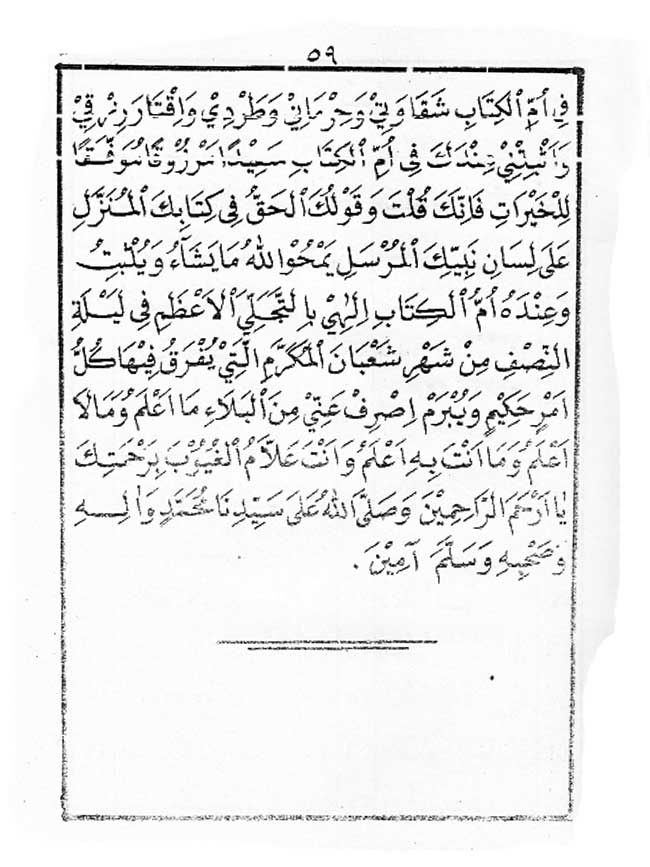 ٥٩
فِي اُمِّ الْكِتَابِ شَقَاوَتِيْ وَحِرْمَانِيْ وَطَرْدِيْ وَاِقْتَارَ رِزْقِيْ
وَاَثْبِتْنِيْ عِنْدَكَ فِى اُمِّ الْكِتَابِ سَعِيْدًا مَرْزُوْقًا مُوَفَّقًا
لِلْخَيْرَاتِ فَاِنَّكَ قُلْتَ وَقَوْلُكَ الْحَقُّ فِى كِتَابِكَ الْمُنَزَّلِ
عَلَى لِسَانِ نَبِيِّكَ الْمُرْسَلِ يَمْحُوْاللهُ مَايَشَآءُ وَيُثْبِتُ
وَعِنْدَهُ اُمُّ الْكِتَابِ اِلٰهِيْ بِالتَّجَلِّى الْاَعْظَمِ فِى لَيْلَةِ
النِّصْفِ مِنْ شَهْرِ شَعْبَانَ الْمُكَرَّمِ الَّتِيْ يُفْرَقُ فِيْهَا كُلُّ
اَمْرٍ حَكِيْمٍ وَيُبْرَمُ اِصْرِفْ عَنِّيْ مِنَ الْبَلَاءِ مَا اَعْلَمُ وَمَالَا
اَعْلَمُ وَمَا اَنْتَ بِهِ اَعْلَمُ وَاَنْتَ عَلَّامُ الْغُيُوْبِ بِرَحْمَتِكَ
يَا اَرْحَمَ الرَّاحِمِيْنَ وَصَلَّى اللهُ عَلَى سَيِّدِنَا مُحَمَّدٍ وَاٰلِهِ
وَصَحْبِهِ وَسَلَّمَ آمِيْنَ .